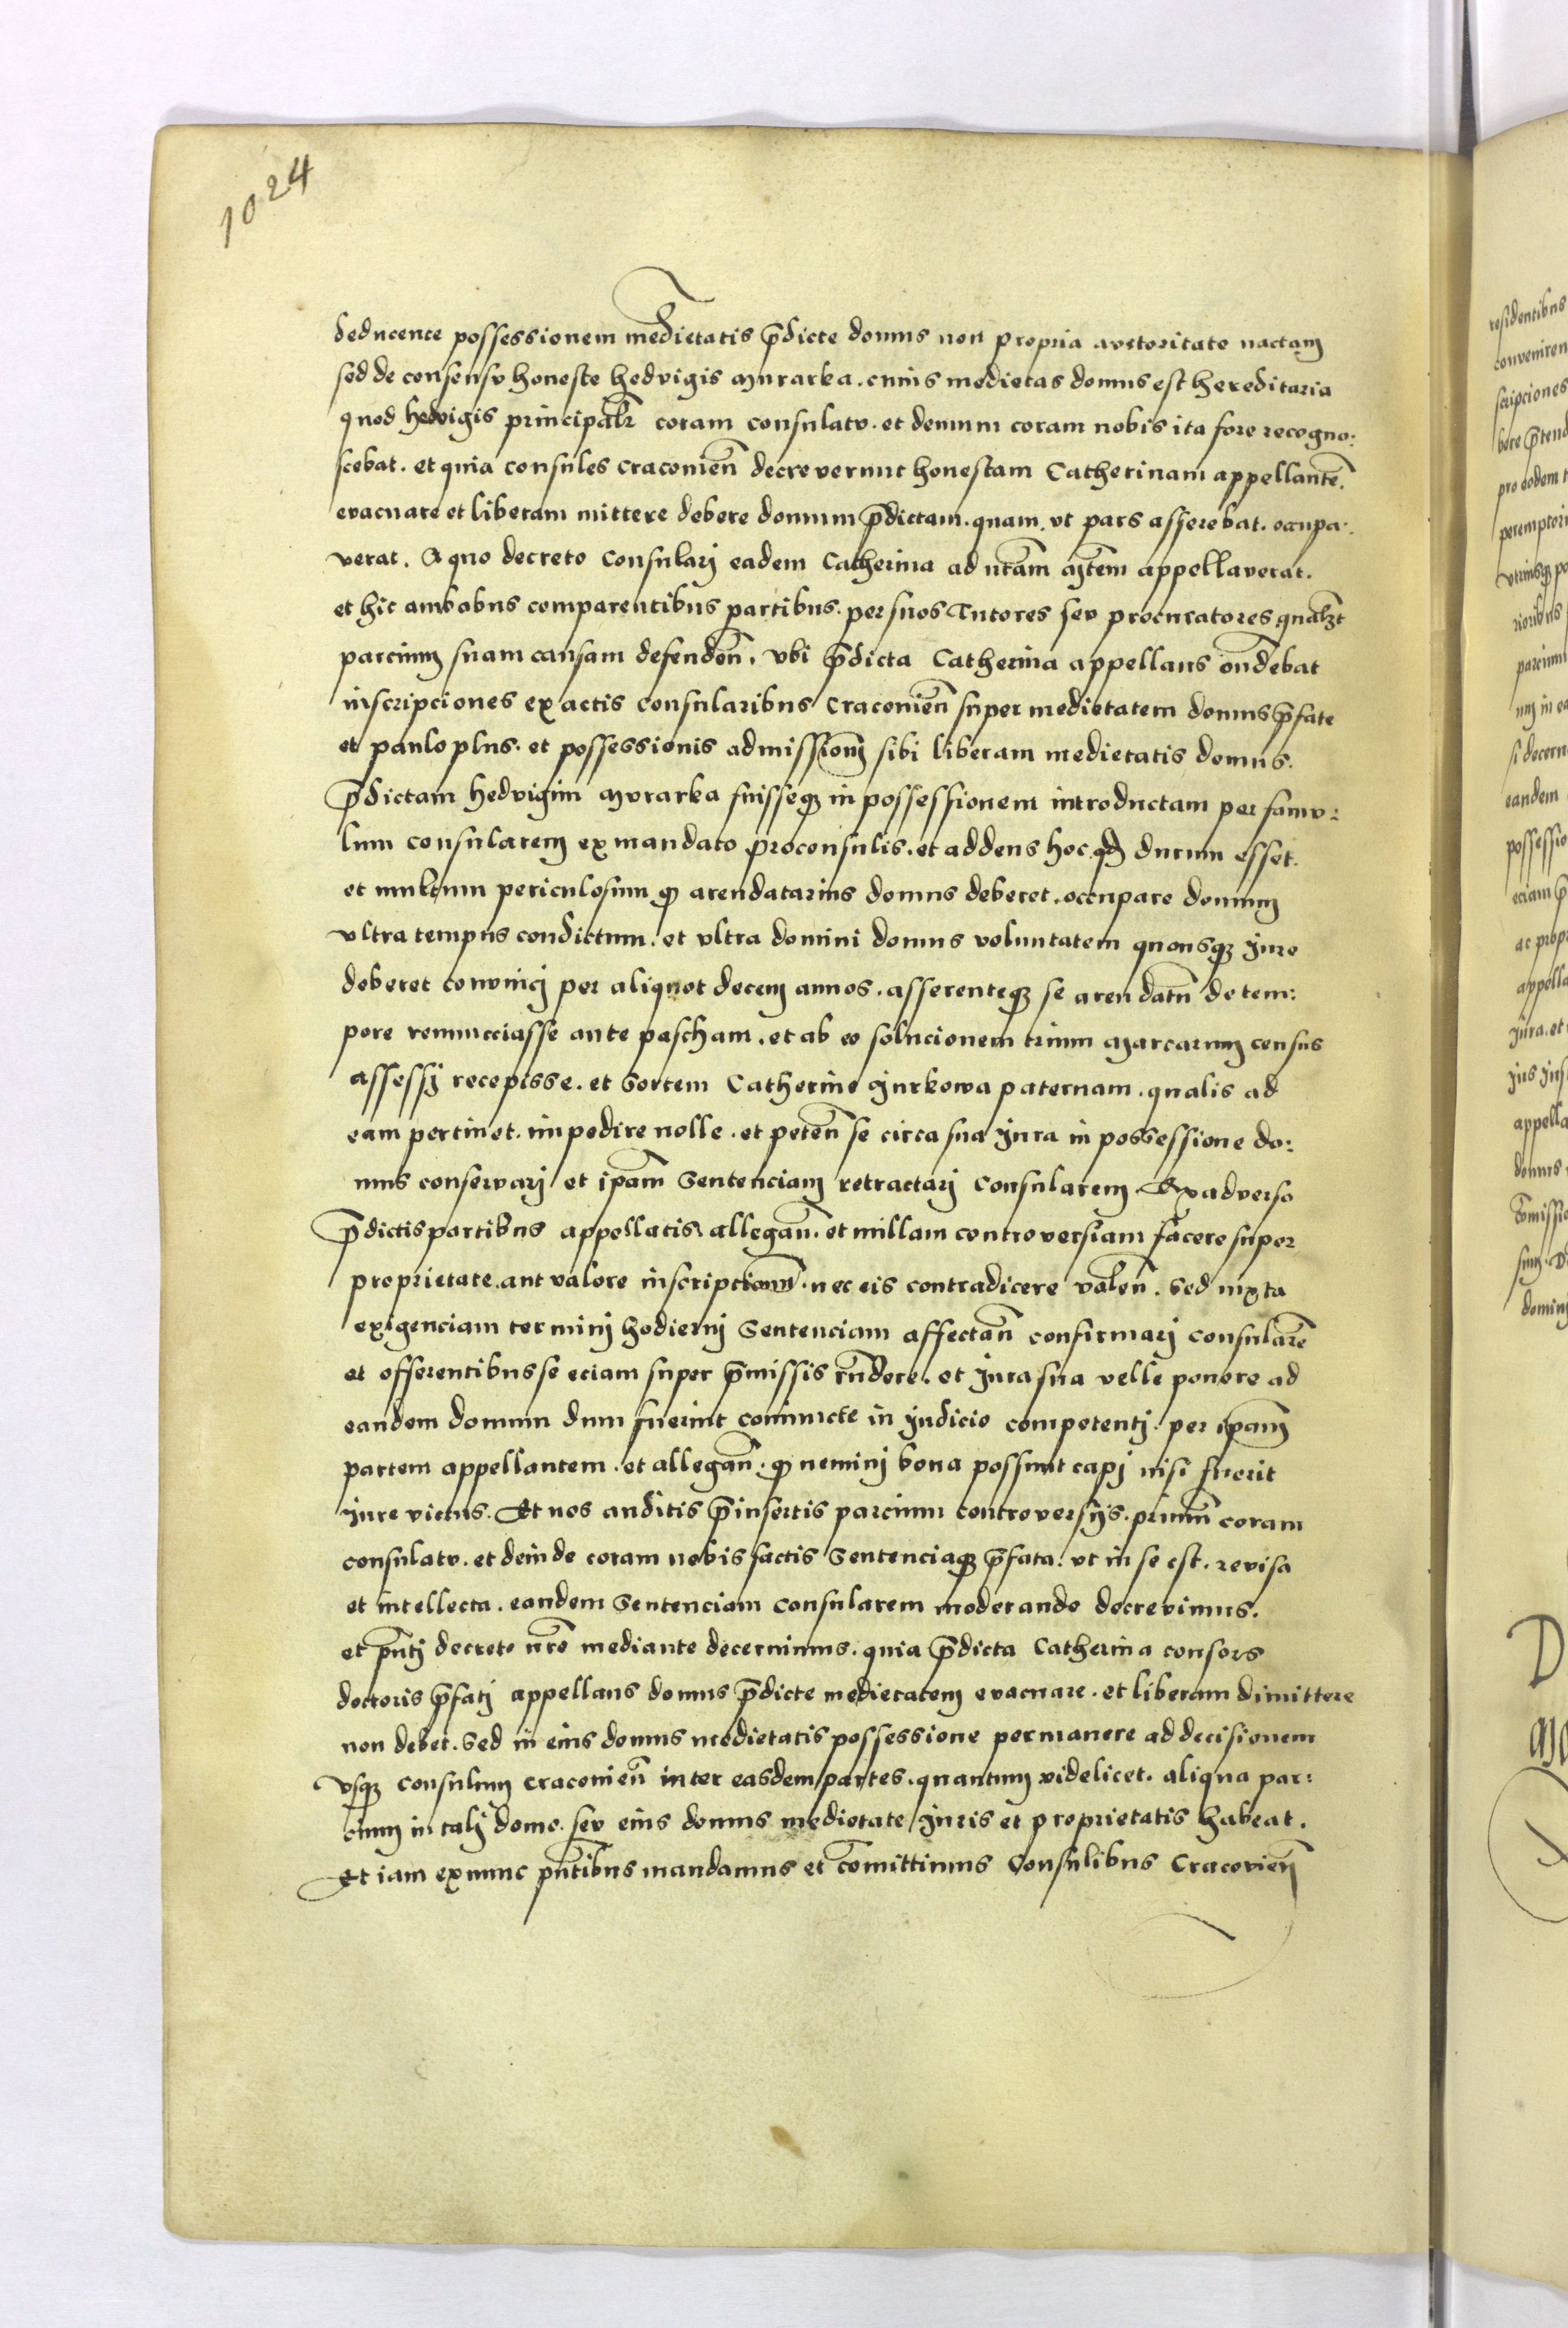 1024
deducente possessionem medietatis p̄dicte domus non propria avctoritate nactam
sed de consensv honeste hedvigis Murarka. cuius medietas domus est hereditaria
quod hedvigis principalr̄ coram consulatv. et demum coram nobis ita fore recogno:
scebat. et quia consules Cracovien̄ decreverunt honestam Catherinam appellantē.
evacuare et liberam mittere debere domum p̄dictam. quam. vt pars asserebat. occupa.
verat. A quo decreto Consularj eadem Catherina ad nr̄am Mt̄em appellaverat.
et hic ambabus comparentibus partibus. per suos Tutores sev procuratores qualr̄t
parcium suam causam defenden̄. vbi p̄dicta Catherina appellans on̄debat
inscripciones ex actis consularibus Cracovien̄ super medietatem domus p̄fate
et paulo plus. et possessionis admissionē sibi liberam medietatis domus.
p̄dictam hedvigim Mvrarka fuisseqʒ in possessionem introductam per famv:
lum consularem ex mandato proconsulis. et addens hoc qd̄ durum esset.
et multum periculosum qͦ arendatarius domus deberet. occupare domum
vltra tempus condictum. et vltra domini domus voluntatem quousqʒ Jure
deberet convincj per aliquot decem annos. asserenteqʒ se arendatū de tem:
pore renuncciasse ante pascham. et ab eo solucionem trium Marcarum census
assessj recepisse. et Sortem Catherine Jurkowa paternam. qualis ad
eam pertinet. impedire nolle. et peten̄ se circa sua Jura in possessione do:
mus conservarj et ip̄am Sentenciam retractarj Consularem. Ex adverso
p̄dictis partibus appellatis allegan̄. et nullam controversiam facere super
proprietate. aut valore inscripcionū. nec eis contradicere valen̄. Sed iuxta
exigenciam terminj hodiernj Sentenciam affectan̄ confirmarj consularē
et offerentibus se eciam super p̄missis rn̄dere. et Jura sua velle ponere ad
eandem domum dum fuerint coniuncte in Judicio competentj. per ip̄am
partem appellantem. et allegan̄. qͦ neminj bona possunt capj nisi fuerit
Jure victus. Et nos auditis p̄insertis parcium controversijs. primū coram
consulatv. et deinde coram nobis factis Sentenciaqʒ p̄fata. vt in se est. revisa
et intellecta. eandem Sentenciam Consularem moderando decrevimus.
et pn̄tj decreto nr̄o mediante decernimus. quia p̄dicta Catherina consors
doctoris p̄fatj appellans domus p̄dicte medietatem evacuare. et liberam dimittere
non debet. Sed in eius domus medietatis possessione permanere ad decisionem
vsqʒ Consulum Cracovien̄ inter easdem partes. quantum videlicet. aliqua par:
cium in talj domo. sev eius domus medietate Juris et proprietatis habeat.
Et iam ex nunc pn̄tibus mandamus et com̄ittimus Consulibus Cracovien̄